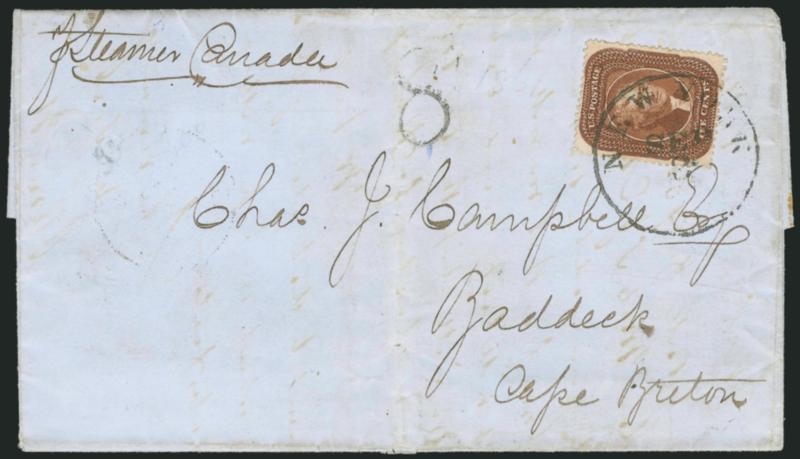 Steamer Canada
U.S. POSTAGE
CENTS
NEW YORK
SEP
Chas. J. Campbell Esq
Baddeck
Cape Breton